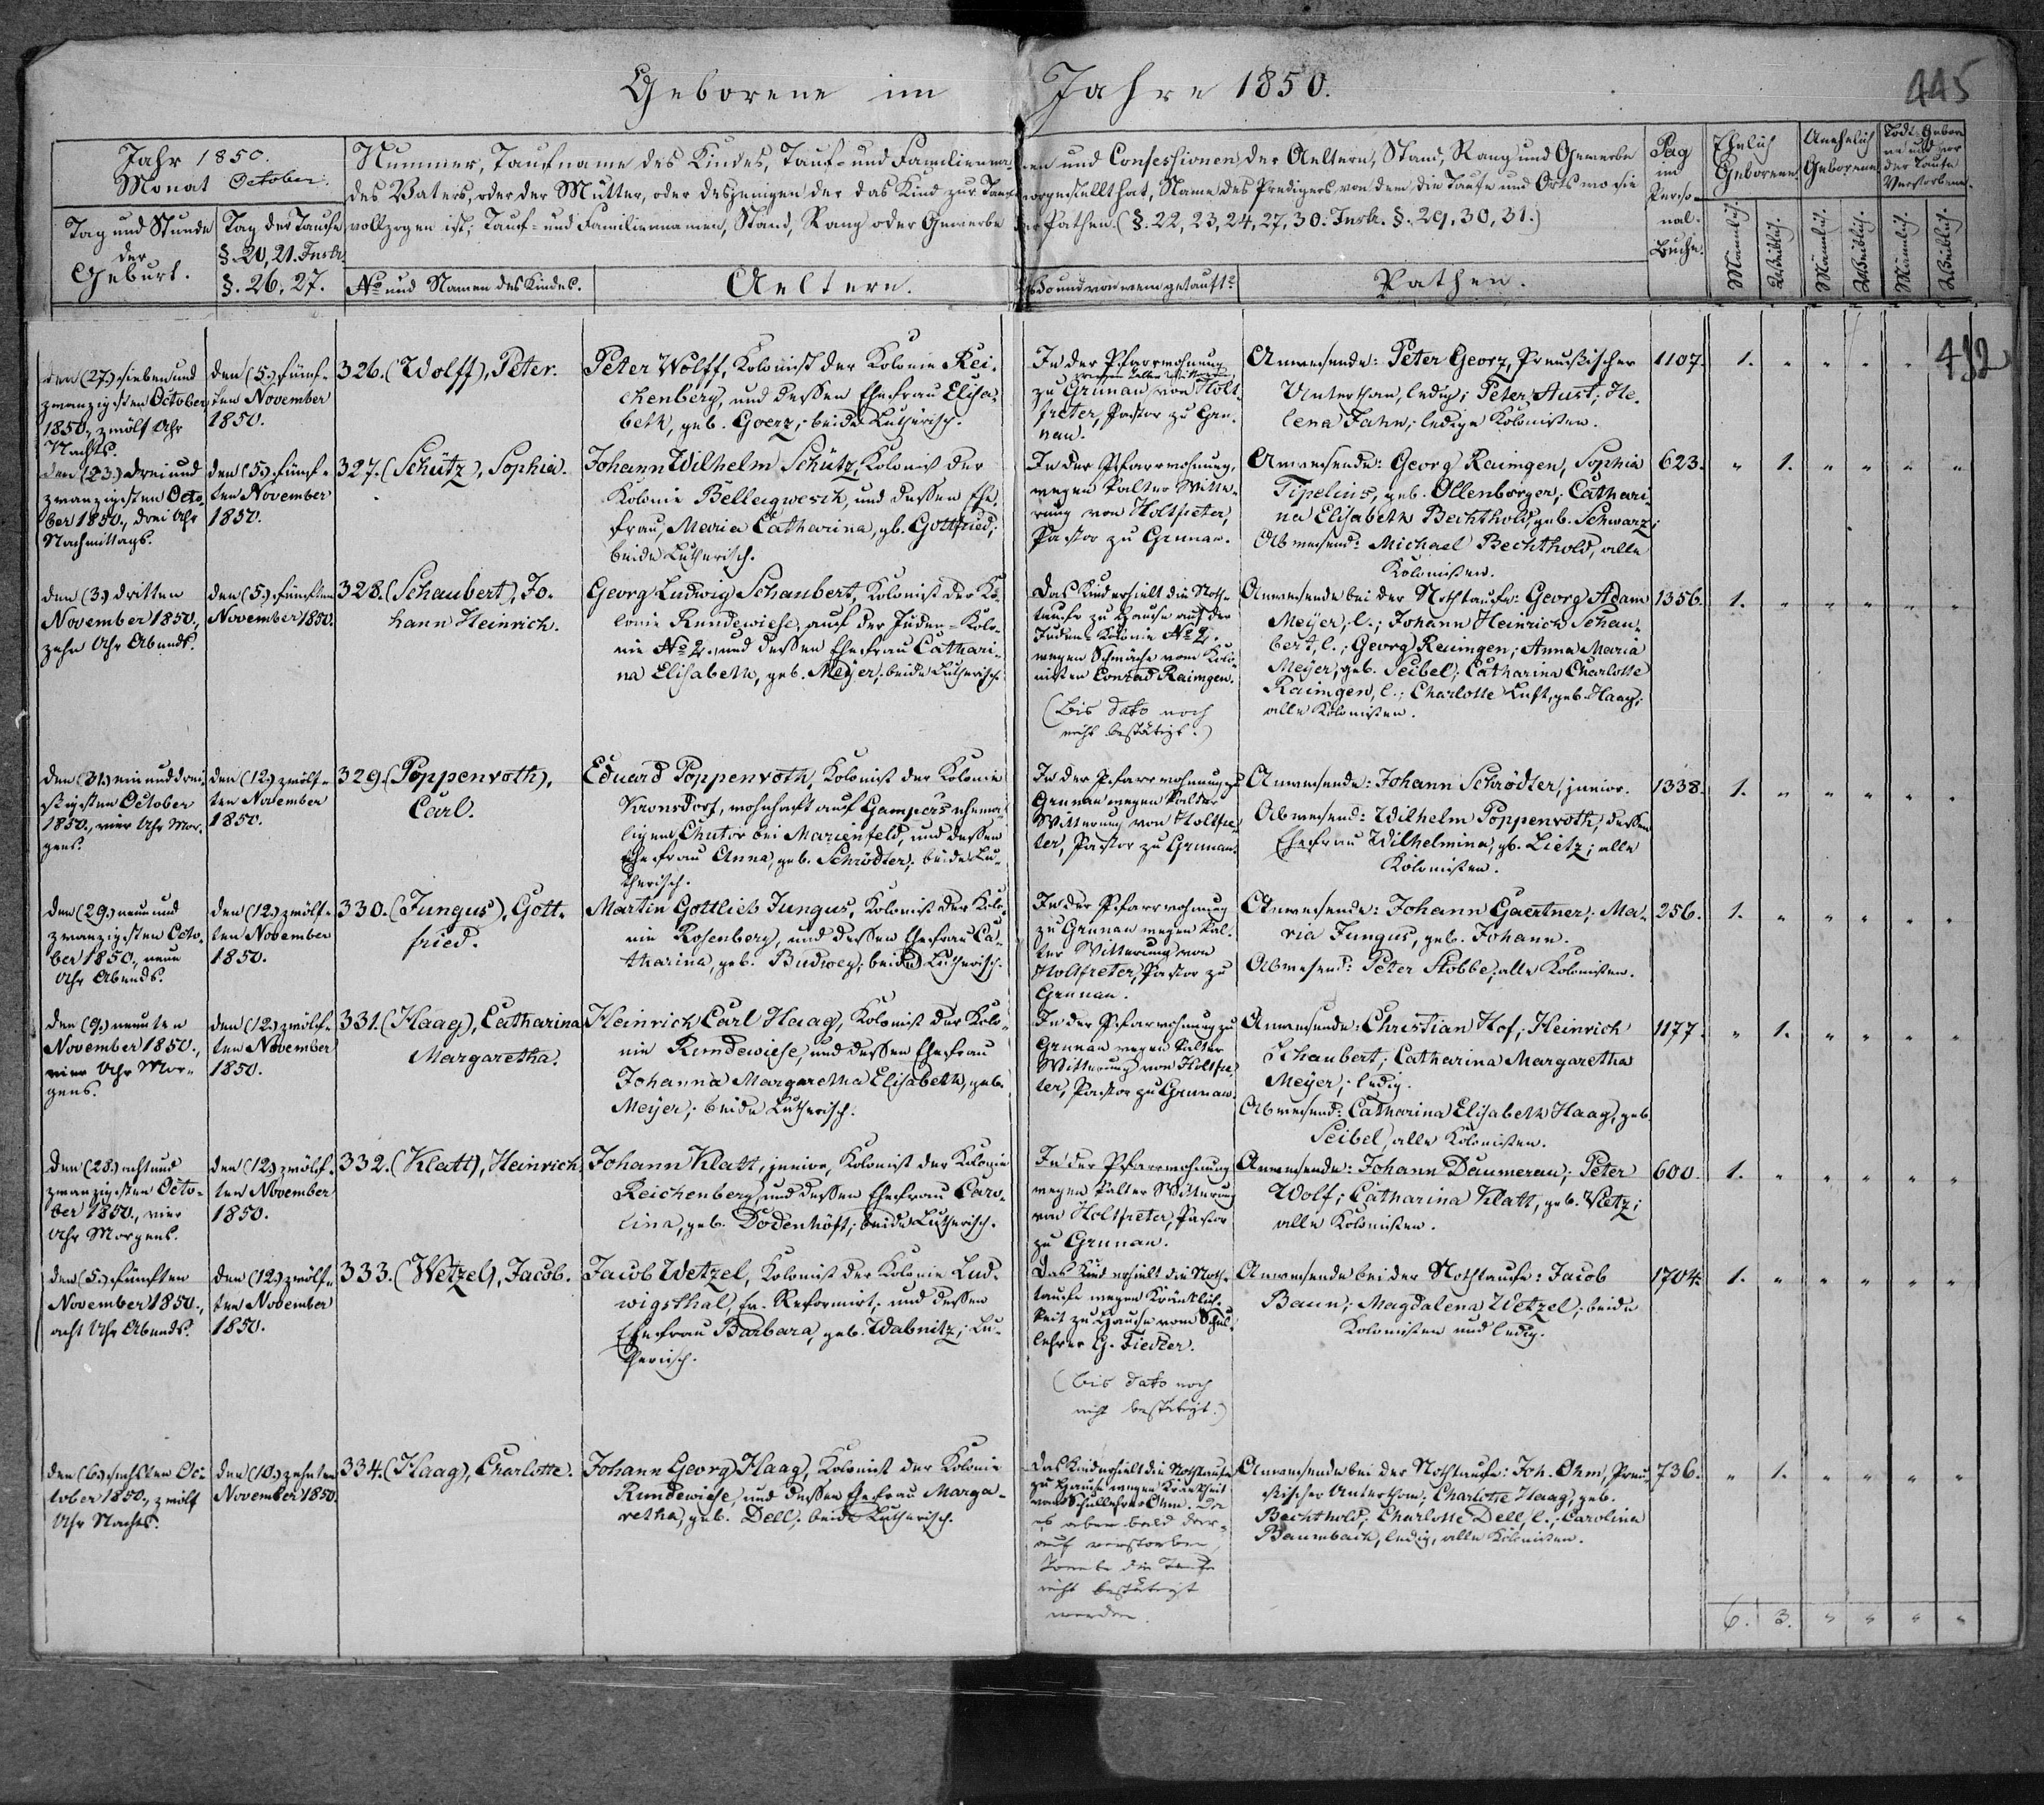 Geborene im Jahre 1850.
445
Jahr 1850.
Monat October.
Nummer, Taufname des Kindes, Tauf- und Familiennamen und Confessionen der Aeltern, Stand, Rang und Gewerbe
des Vaters, oder der Mutter, oder desjenigen der das Kind zur Taufe vorgestellt hat, Name des Predigers von dem die Taufe und Orts wo sie
vollzogen ist; Tauf- und Familiennamen, Stand, Rang oder Gewerbe der Pathen. (§. 22, 23, 24, 27, 30. Instr. §. 29, 30, 31.)
Tag und Stunde
der
Geburt.
Tag der Taufe
§. 20, 21. Instr.
§. 26, 27.
No und Namen des Kindes.
Aeltern.
Wo und von wem getauft?
Pathen.
Pag
im
Perso-
nal-
Buche.
Ehelich
Geborene.
Unehelich
Geborene.
Todt-Gebore
ne und vor
der Taufe
Verstorbene.
Männlich.
Weiblich.
Männlich.
Weiblich.
Männlich.
Weiblich.
den (27.) sieben und
zwanzigsten October
1850., zwölf Uhr
Nachts.
den (5.) fünf-
ten November
1850.
326. (Wolff), Peter.
Peter Wolff, Kolonist der Kolonie Rei-
chenberg, und dessen Ehefrau Elisa-
beth, geb. Goerz; beide Lutherisch.
In der Pfarrwohnung
wegen kalter Witterung
zu Grunau von Holt-
freter, Pastor zu Gru-
nau.
Anwesende: Peter Georz, Preußischer
Unterthan, ledig; Peter Aust; He-
lena Jahn; ledige Kolonisten.
1107.
1. " " " "
432
den (23.) drei und
zwanzigsten Octo-
ber 1850., drei Uhr
Nachmittags.
den (5.) fünf-
ten November
1850.
327. (Schütz), Sophia.
Johann Wilhelm Schütz, Kolonist der
Kolonie Bellagwesch, und dessen Ehe-
frau, Maria Catharina, gb. Gottfried;
beide Lutherisch.
In der Pfarrwohnung,
wegen kalter Witte-
rung von Holtfreter,
Pastor zu Grunau.
Anwesende: Georg Raimgen, Sophia
Tipelius, geb. Ollenborger; Cathari-
na Elisabeth Bechthold, geb. Schwarz;
Abwesend: Michael Bechthold, alle
Kolonisten.
623.
" 1. " " " "
den (3.) dritten
November 1850.,
zehn Uhr Abends.
den (5.) fünften
November 1850.
328. (Schaubert), Jo-
hann Heinrich.
Georg Ludwig Schaubert, Kolonist der Ko-
lonie Rundewiese, auf der Juden-Kolo-
nie No 2. und dessen Ehefrau Cathari-
na Elisabeth, geb. Meÿer; beide Lutherisch.
Das Kind erhielt die Noth-
taufe zu Hause auf der
Juden-Kolonie No 2.
wegen Schwäche vom Kolo-
nisten Conrad Raimgen.
(Bis dato noch
nicht bestätigt.)
Anwesende bei der Nothtaufe: Georg Adam
Meÿer, l.; Johann Heinrich Schau-
bert, l.; Georg Raimgen; Anna Maria
Meÿer, geb. Seibel; Catharina Charlotte
Raimgen, l.; Charlotte Luft, geb. Haag;
alle Kolonisten.
1356.
1. " " " " "
den (31.) ein und drei-
ßigsten October
1850., vier Uhr Mor-
gens.
den (12.) zwölf-
ten November
1850.
329. (Poppenroth),
Carl.
Eduard Poppenroth, Kolonist der Kolonie
Kronsdorf, wohnhaft auf Gampers ehema-
ligem Chutor bei Marienfeld, und dessen
Ehefrau Anna, geb. Schrödter; beide Lu-
therisch.
In der Pfarrwohnung zu
Grunau wegen kalter
Witterung von Holtfre-
ter, Pastor zu Grunau.
Anwesende: Johann Schrödter, junior.
Abwesend: Wilhelm Poppenroth, dessen
Ehefrau Wilhelmina, gb. Lietz; alle
Kolonisten.
1338.
1. " " " " "
den (29.) neun und
zwanzigsten Octo-
ber 1850., neun
Uhr Abends.
den (12.) zwölf-
ten November
1850.
330. (Jungus), Gott-
fried.
Martin Gottlieb Jungus, Kolonist der Kolo-
nie Rosenberg, und dessen Ehefrau Ca-
tharina, geb. Budweg; beide Lutherisch.
In der Pfarrwohnung
zu Grunau wegen kal-
ter Witterung von
Holtfreter, Pastor zu
Grunau.
Anwesende: Johann Gaertner; Ma-
ria Jungus, geb. Johann.
Abwesend: Peter Stobbe; alle Kolonisten.
256.
1. " " " " "
den (9.) neunten
November 1850.,
vier Uhr Mor-
gens.
den (12.) zwölf-
ten November
1850.
331. (Haag), Catharina
Margaretha.
Heinrich Carl Haag, Kolonist der Kolo-
nie Rundewiese, und dessen Ehefrau
Johanna Margaretha Elisabeth, geb.
Meÿer; beide Lutherisch.
In der Pfarrwohnung zu
Grunau wegen kalter
Witterung von Holtfre-
ter, Pastor zu Grunau.
Anwesende: Christian Hof; Heinrich
Schaubert; Catharina Margaretha
Meÿer; ledig.
Abwesend: Catharina Elisabeth Haag, geb.
Seibel, alle Kolonisten.
1177.
" 1. " " " "
den (28.) acht und
zwanzigsten Octo-
ber 1850., vier
Uhr Morgens.
den (12.) zwölf-
ten November
1850.
332. (Klatt), Heinrich
Johann Klatt, junior, Kolonist der Kolonie
Reichenberg, und dessen Ehefrau Caro-
lina, geb. Dodenhöft; beide Lutherisch.
In der Pfarrwohnung
wegen kalter Witterung
von Holtfreter, Pastor
zu Grunau.
Anwesende: Johann Daumerau; Peter
Wolf; Catharina Klatt, geb. Vietz;
alle Kolonisten.
600.
1. " " " " "
den (5.) fünften
November 1850.,
acht Uhr Abends.
den (12.) zwölf-
ten November
1850.
333. (Wetzel), Jacob.
Jacob Wetzel, Kolonist der Kolonie Lud-
wigsthal, Ev. Reformirt; und dessen
Ehefrau Barbara, geb. Wabnitz; Lu-
therisch.
Das Kind erhielt die Noth-
taufe wegen Kränklich-
keit zu Hause vom Schul-
lehrer G. Fiedler.
(bis dato noch
nicht bestätigt.)
Anwesende bei der Nothtaufe: Jacob
Baun; Magdalena Wetzel; beide
Kolonisten und ledig.
1704.
1. " " " " "
den (6.) sechsten Oc-
tober 1850., zwölf
Uhr Nachts.
den (10.) zehnten
November 1850.
334. (Haag), Charlotte.
Johann Georg Haag, Kolonist der Kolonie
Rundewiese, und dessen Ehefrau Marga-
retha, geb. Dell; beide Lutherisch.
Das Kind erhielt die Nothtaufe
zu Hause wegen Krankheit
vom Schullehrer Ohm. Da
es aber bald dar-
auf verstorben,
konnte die Taufe
nicht bestätigt
werden.
Anwesende bei der Nothtaufe: Joh. Ohm, Preu-
ßischer Unterthan; Charlotte Haag, geb.
Bechthold; Charlotte Dell, l.; Carolina
Baumbach, ledig, alle Kolonisten.
736.
" 1. " " " "
6. 3. " " " "